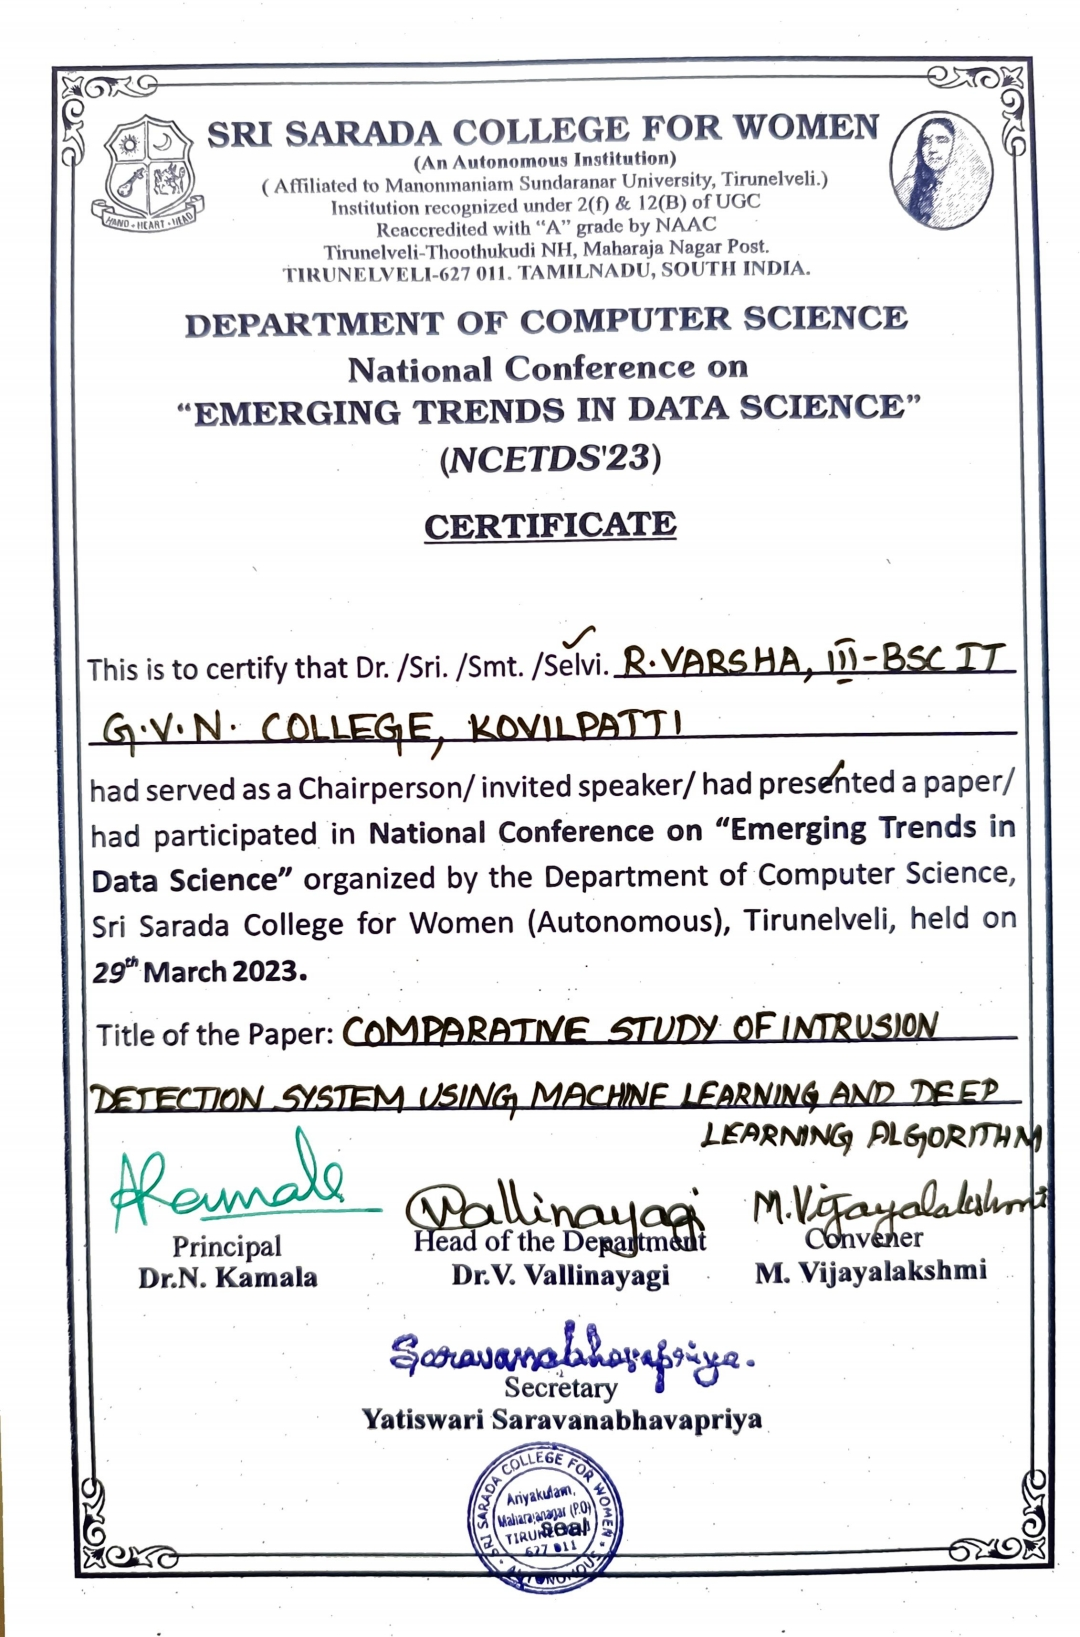 SRI SARADA COLLEGE FOR WOMEN
(An Autonomous Institution)
( Affiliated to Manonmaniam Sundaranar University, Tirunelveli.)
Institution recognized under 2(f) & 12(B) of UGC
Reaccredited with “A” grade by NAAC
Tirunelveli-Thoothukudi NH, Maharaja Nagar Post.
TIRUNELVELI-627 011. TAMILNADU, SOUTH INDIA.
HAND • HEART • HEAD
DEPARTMENT OF COMPUTER SCIENCE
National Conference on
“EMERGING TRENDS IN DATA SCIENCE”
(NCETDS'23)
CERTIFICATE
This is to certify that Dr. /Sri. /Smt. /Selvi. R.VARSHA, III-BSC IT
G.V.N. COLLEGE, KOVILPATTI
had served as a Chairperson/ invited speaker/ had presented a paper/
had participated in National Conference on “Emerging Trends in
Data Science” organized by the Department of Computer Science,
Sri Sarada College for Women (Autonomous), Tirunelveli, held on
29th March 2023.
Title of the Paper: COMPARATIVE STUDY OF INTRUSION
DETECTION SYSTEM USING MACHINE LEARNING AND DEEP
LEARNING ALGORITHM
Vallinayagi M.Vijayalakshmi
Principal Head of the Department Convener
Dr.N. Kamala Dr.V. Vallinayagi M. Vijayalakshmi
Saravanabhavapriya.
Secretary
Yatiswari Saravanabhavapriya
SRI SARADA COLLEGE FOR WOMEN
Ariyakulam,
Maharajanagar (P.O)
seal
627 011
AUTONOMOUS